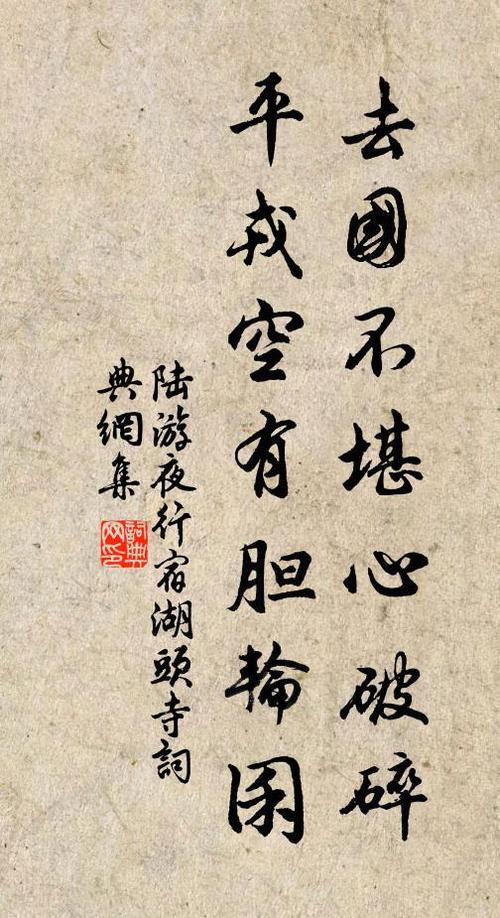 去國不堪心破碎
平戎空有胆輪囷
陸游夜行宿湖頭寺詞
典網集
詞典網印